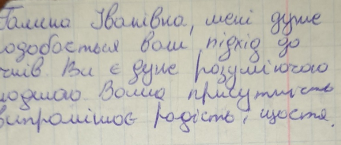 Галина Іванівно, мені дуже
подобається ваш підхід до
учнів Ви є дуже розуміючою
людиною Ваша присутність
випромінює радість, щостя.